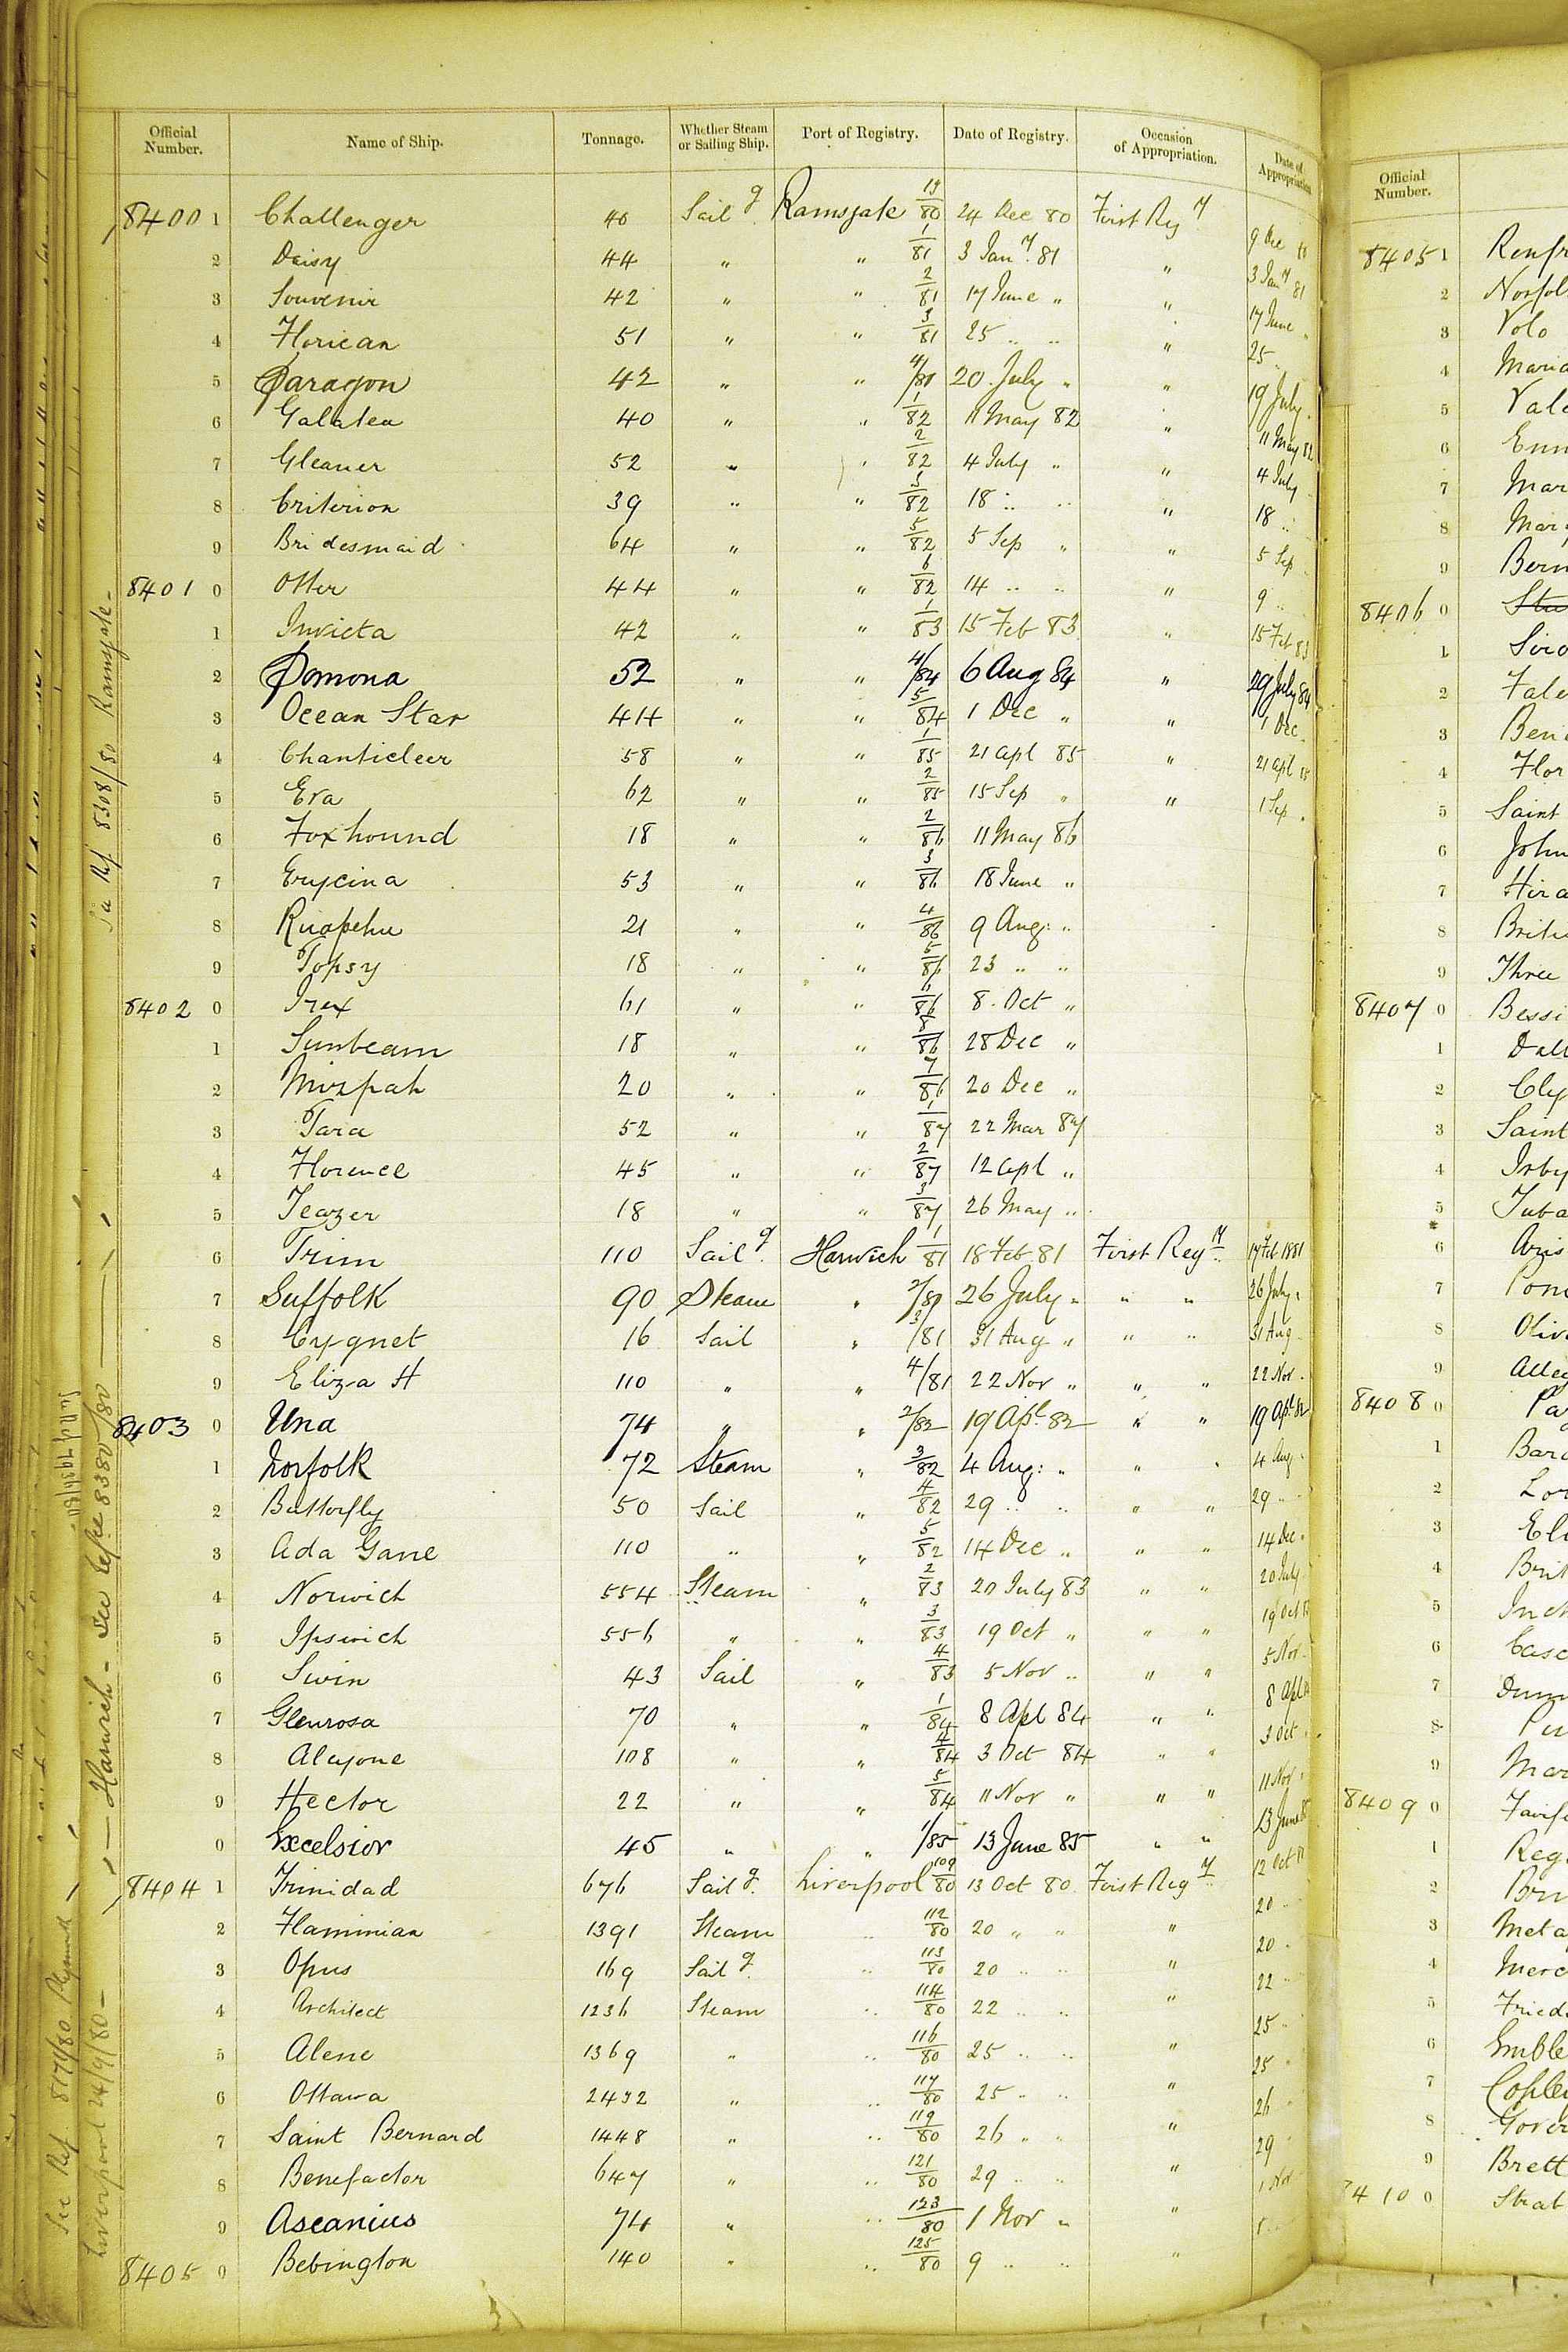 Official Number. Name of Ship. Tonnage. Whether Steam or Sailing Ship. Port of Registry. Date of Registry. Occasion of Appropriation. Date of Appropriation
8400 1 Challenger 40 Sailg Ramsgate 19/80 24 Dec 80 First Regy 9 Dec 80
2 Daisy 44 " " 1/81 3 Jany. 81 " 3 Jany 81
3 Souvenir 42 " " 2/81 17 June " " 17 June "
4 Florican 51 " " 3/81 25 " " " 25 "
5 Paragon 42 " " 4/81 20 July " " 19 July "
6 Galatea 40 " " 1/82 11 May 82 " 11 May 82
7 Gleaner 52 " " 2/82 4 July " " 4 July
8 Criterion 39 " " 3/82 18 " " " 18 "
9 Bridesmaid 64 " " 5/82 5 Sep " " 5 Sep "
8401 0 Otter 44 " " 6/82 14 " " " 9 "
1 Invicta 42 " " 1/83 15 Feb 83 " 15 Feb 83
2 Pomona 52 " " 4/84 6 Aug 84 " 29 July 84
3 Ocean Star 44 " " 5/84 1 Dec " " 1 Dec "
4 Chanticleer 58 " " 1/85 21 apl 85 " 21 apl 85
5 Era 62 " " 2/85 15 Sep " " 1 Sep "
6 Foxhound 18 " " 2/86 11 May 86
7 Erycina 53 " " 3/86 18 June "
8 Ruapehu 21 " " 4/86 9 Aug: "
9 Topsy 18 " " 5/86 23 " "
8402 0 Irex 61 " " /86 8 Oct "
1 Sunbeam 18 " " 8/86 28 Dec "
2 Mizpah 20 " " 7/86 20 Dec "
3 Tara 52 " " 1/87 22 Mar 87
4 Florence 45 " " 2/87 12 apl "
5 Teazer 18 " " 3/87 26 May "
6 Trim 110 Sailg. Harwich 1/81 18 Feb 81 First Regy 17 Feb 1881
7 Suffolk 90 Steam " 2/81 26 July " " " 26 July "
8 Cygnet 16 Sail " 3/81 31 Aug " " " 31 Aug "
9 Eliza H 110 " " 4/81 22 Nov " " " 22 Nov "
8403 0 Una 74 " " 2/82 19 Apl 82 " " 19 Apl 82
1 Norfolk 72 Steam " 3/82 4 Aug: " " " 4 Aug "
2 Butterfly 50 Sail " 4/82 29 " " " " 29 "
3 Ada Gane 110 " " 5/82 14 Dec " " " 14 Dec "
4 Norwich 554 Steam " 2/83 20 July 83 " " 20 July
5 Ipswich 556 " " 3/83 19 Oct " " " 19 Oct 83
6 Swin 43 Sail " 4/83 5 Nov " " " 5 Nov "
7 Glenrosa 70 " " 1/84 8 Apl 84 " " 8 Apl 84
8 Alcyone 108 " " 4/84 3 Oct 84 " " 3 Oct "
9 Hector 22 " " 5/84 11 Nov " " " 11 Nov "
0 Excelsior 45 " " 1/85 13 June 85 " " 13 June 85
8404 1 Trinidad 676 Sailg. Liverpool 109/80 13 Oct 80 First Regy 12 Oct 80
2 Flaminian 1391 Steam " 112/80 20 " " " 20 "
3 Opus 169 Sailg " 113/80 20 " " " 20 "
4 Architect 1236 Steam " 114/80 22 " " " 22 "
5 Alene 1369 " " 116/80 25 " " " 25 "
6 Ottawa 2432 " " 117/80 25 " " " 25 "
7 Saint Bernard 1448 " " 119/80 26 " " " 26 "
8 Benefactor 647 " " 121/80 29 " " " 29 "
9 Ascanius 74 " " 123/80 1 Nov " " 1 Nov
8405 0 Bebington 140 " " 125/80 9 " " "
Ref 8308/80 Ramsgate -
Harwich - See before 8380/80
See Ref 8171/80 Plymouth
Liverpool 24/9/80 -
Official Number.
8405 1 Renfr
2 Norfol
3 Volo
4 Maria
5 Vale
6 Emm
7 Mar
8 Mar
9 Bern
8406 0
1 Siro
2 Fale
3 Ben
4 Flor
5 Saint
6 John
7 Hira
8 Brit
9 Three
8407 0 Bessi
1 Dall
2 Cly
3 Saint
4 Irby
5 Tuba
6
7 Pom
8 Oliv
9 Alleg
8408 0 Pa
1 Bar
2 Lor
3 El
4 Brit
5 Inch
6 Casc
7 Dun
8
9 Mar
8409 0
1 Reg
2
3 Meta
4 Merc
5 Fried
6 Emble
7 Copley
8 Gover
9 Brett
8410 0 Strat